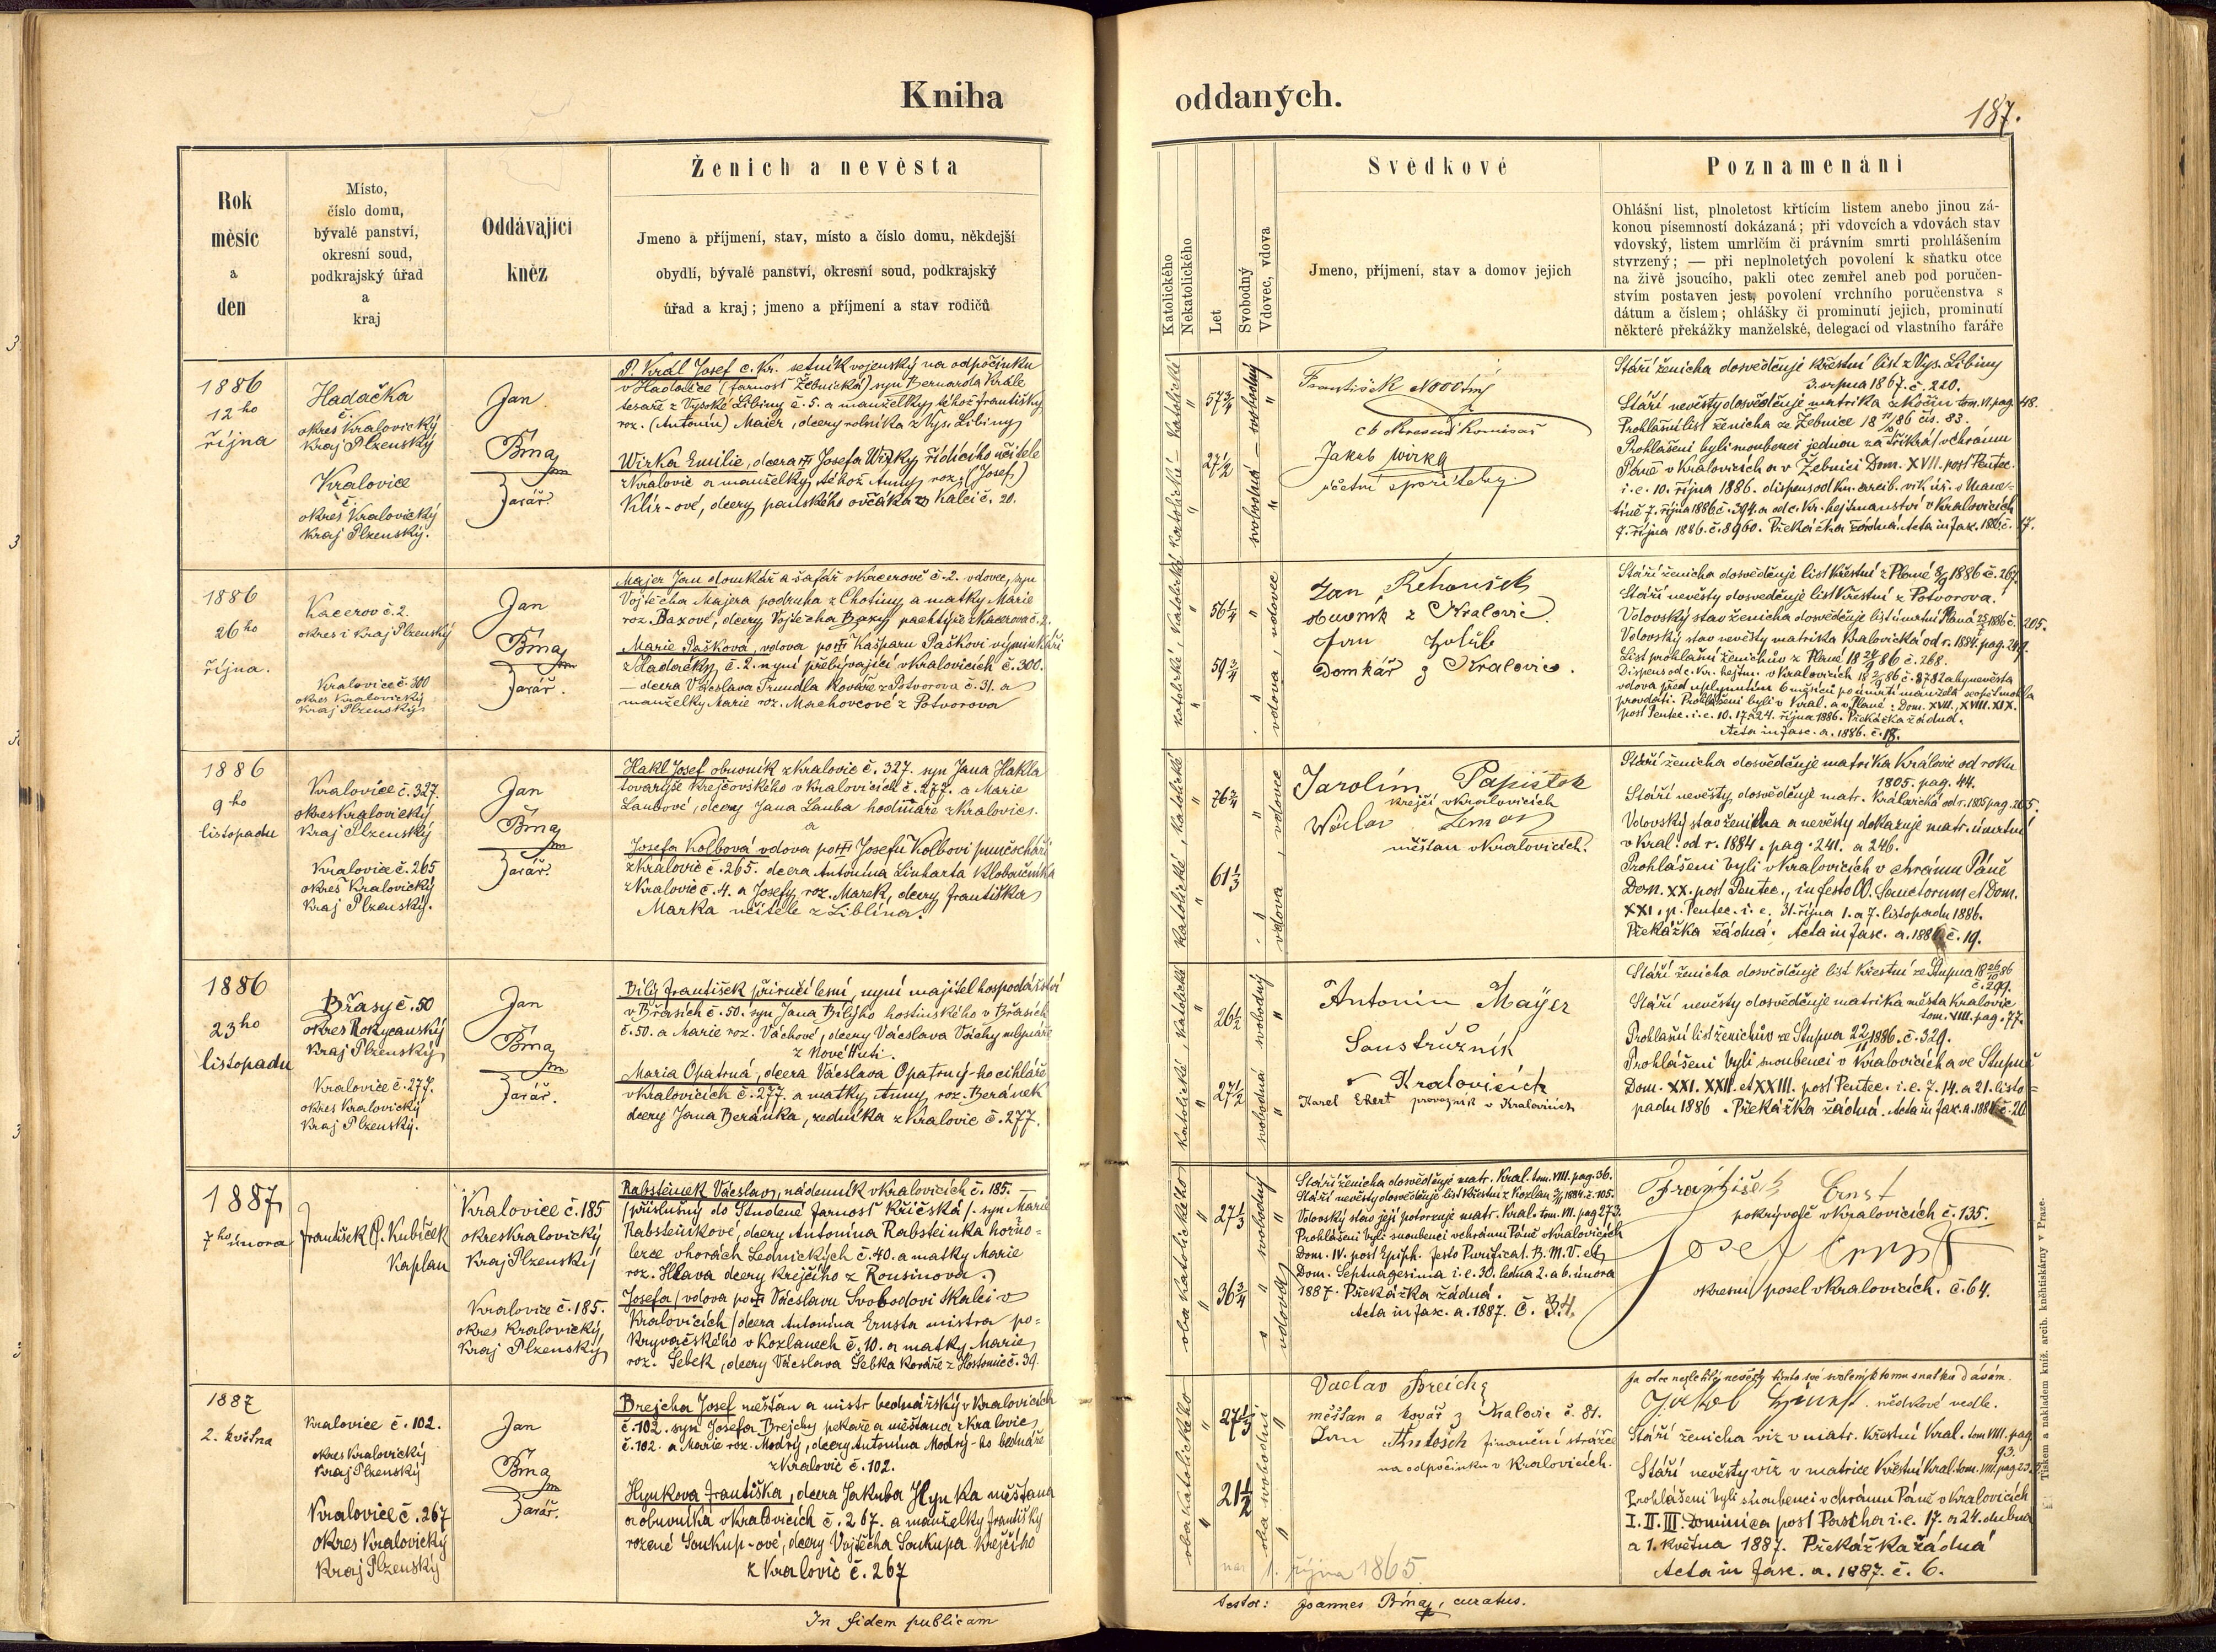 Kniha
oddaných.
187.
Rok
měsíc
a
den
Místo,
číslo domu,
bývalé panství,
okresní soud,
podkrajský úřad
a
kraj
Oddávající
kněz
Ženich a nevěsta
Jmeno a příjmení, stav, místo a číslo domu, někdejší
obydlí, bývalé panství, okresní soud, podkrajský
úřad a kraj; jmeno a příjmení a stav rodičů
Katolického
Nekatolického
Let
Svobodný
Vdovec, vdova
Svědkové
Jmeno, příjmení, stav a domov jejich
Poznamenání
Ohlášní list, plnoletost křtícím listem anebo jinou zá-
konou písemností dokázaná; při vdovcích a vdovách stav
vdovský, listem umrlčím či právním smrti prohlášením
stvrzený; — při neplnoletých povolení k sňatku otce
na živě jsoucího, pakli otec zemřel aneb pod poručen-
stvím postaven jest, povolení vrchního poručenstva s
dátum a číslem; ohlášky či prominutí jejich, prominutí
některé překážky manželské, delegací od vlastního faráře
1886
12ho
října
Hadačka
č.
okres Kralovický
Kraj Plzenský
Kralovice
č.
okres Kralovický
Kraj Plzenský.
Jan
Brna
farář
P. Král Josef c. kr. setník vojenský na odpočinku
v Hadačce (farnost Žebnická) syn Bernarda Krále
tesaře z Vysoké Libiny č. 5. a manželky téhož Františky
roz. (Antonín) Maier, dcery rolníka z Vys. Libiny
Wirka Emilie, dcera Josefa Wirky řídícího učitele
z Kralovic a manželky téhož Anny roz. (Josef)
Klír-ové, dcery panského ovčáka z Kalce č. 20.
katolická – katolický
57 3/4
27 1/2
svobodná – svobodný
František
c k okresní komisař
Jakub Wirka
účetní spořitelny.
Stáří ženicha dosvědčuje křestní list z Vys. Libiny
3. srpna 1867. č. 220.
Stáří nevěsty dosvědčuje matrika z Kočín tom. VI. pag. 48.
Prohlašní list ženicha ze Žebnice 18 11/10 86 čís. 83.
Prohlášeni byli snoubenci jednou za třikrát v chrámu
Páně v Kralovicích a v Žebnici Dom. XVII. post Pentec.
i. e. 10. října 1886. dispens od kn. arcib. vik. úř. v Mane-
tíně 7. října 1886 č. 394. a od c. kr. hejtmanství v Kralovicích
9. října 1886. č. 8960. Překážka žádná. Acta in fasc. 1886 č. 17.
1886
26ho
října.
Kacerov č. 2.
okres i kraj Plzenský
Kralovice č. 300
okres Kralovický
Kraj Plzenský
Jan
Brna
farář.
Majer Jan domkář a šafář v Kacerově č. 2. vdovec, syn
Vojtěcha Majera podruha z Chotiny a matky Marie
roz. Baxové, dcery Vojtěcha Baxy pachtýře z Kacerova č. 2.
Marie Pašková, vdova po Kašparu Paškovi výminkáři
z Hadačky č. 2. nyní přebývající v Kralovicích č. 300.
— dcera Václava Trundla kováře z Potvorova č. 31. a
manželky Marie roz. Machovcové z Potvorova
katolická, katolický
56 1/4
50 3/4
vdova, vdovec
Jan Řehoušek
obuvník z Kralovic
Jan Holub
Domkář z Kralovic.
Stáří ženicha dosvědčuje list křestní z Plané 8/9 1886 č. 267.
Stáří nevěsty dosvědčuje list křestní z Potvorova.
Vdovský stav ženicha dosvědčuje list úmrtní Planá 1886 č. 205.
Vdovský stav nevěsty matrika Kralovická od r. 1884. pag. 249.
List prohlašní ženichův z Plané 18 24/9 86 č. 268.
Dispens od c. kr. hejtm. v Kralovicích 86 č. 8782 aby nevěsta
vdova před uplynutím 6 měsíců po úmrtí manžela se opět mohla
provdati. Prohlášeni byli v Kral. a v Plané: Dom. XVII., XVIII. XIX.
post Pentec. i. e. 10. 17. a 24. října 1886. Překážka žádná.
Acta in fasc. a. 1886. č. 18.
1886
9ho
listopadu
Kralovice č. 327.
okres Kralovický
Kraj Plzenský
Kralovice č. 265
okres Kralovický
Kraj Plzenský.
Jan
Brna
farář.
Hakl Josef obuvník z Kralovic č. 327. syn Jana Hakla
tovaryše krejčovského v Kralovicích č. 277. a Marie
Laubové, dcery Jana Lauba hodináře z Kralovic.
a
Josefa Kolbová vdova po Josefu Kolbovi punčocháři
z Kralovic č. 265. dcera Antonína Linharta kloboučníka
z Kralovic č. 4. a Josefy roz. Marek, dcery Františka
Marka učitele z Liblína.
katolická, katolický
76 3/4
61 1/3
vdova, vdovec
Jarolím Papistok
krejčí v Kralovicích
Wáclav Zeman
měšťan v Kralovicích.
Stáří ženicha dosvědčuje matrika Kralovic od roku
1805. pag. 44.
Stáří nevěsty dosvědčuje matr. Kralovická od r. 1805 pag. 205.
Vdovský stav ženicha a nevěsty dokazuje matr. úmrtní
v Kral. od r. 1884. pag. 241. a 246.
Prohlášeni byli v Kralovicích v chrámu Páně
Dom. XX. post Pentec., in festo OO. Sanctorum et Dom.
XXI. p. Pentec. i. e. 31. října 1. a 7. listopadu 1886.
Překážka žádná. Acta in fasc. a. 1886 č. 19.
1886
23ho
listopadu
Břasy č. 50
okres Rokycanský
Kraj Plzenský
Kralovice č. 277.
okres Kralovický
Kraj Plzenský.
Jan
Brna
farář.
Bílý František příručí lesní, nyní majitel hospodářství
v Břasích č. 50. syn Jana Bílýho hostinského v Břasích
č. 50. a Marie roz. Váchové, dcery Václava Váchy mlynáře
z Nové Huti.
Maria Opatrná, dcera Václava Opatrný-ho cihláře
v Kralovicích č. 277. a matky Anny roz. Beránek
dcery Jana Beránka, zedníka z Kralovic č. 277.
katolická katolický
26 1/2
27 1/2
svobodná svobodný
Antonin Mayer
Soustružník
v Kralovicích
Karel Ekert provazník v Kralovicích
Stáří ženicha dosvědčuje list křestní ze Stupna 18 26/10 86
č. 299.
Stáří nevěsty dosvědčuje matrika města Kralovic
tom. VIII. pag. 77.
Prohlašní list ženichův ze Stupna 22/11 1886. č. 329.
Prohlášeni byli snoubenci v Kralovicích a ve Stupně
Dom. XXI. XXII. et XXIII. post Pentec. i. e. 7. 14. a 21. listo=
padu 1886. Překážka žádná. Acta in fasc. a. 1886 č. 20
1887
7ho února
František P. Kubíček
Kaplan
Kralovice č. 185
okres Kralovický
Kraj Plzenský
Kralovice č. 185.
okres Kralovický
Kraj Plzenský
Rabsteinek Václav, nádenník v Kralovicích č. 185. —
(příslušný do Studené farnost Kříčská). syn Marie
Rabsteinkové, dcery Antonína Rabsteinka horno=
lezce v horách Lednických č. 40. a matky Marie
roz. Hlava dcery krejčího z Rousinova.
Josefa (vdova po Václavu Svobodovi tkalci v
Kralovicích) dcera Antonína Ernsta mistra po=
kryvačského v Kozlanech č. 10. a matky Marie
roz. Šebek, dcery Václava Šebka kováře z Hostomic č. 39.
oba katolického
27 1/3
36 3/4
svobodný
vdova
Stáří ženicha dosvědčuje matr. Kral. tom. VIII. pag. 36.
Stáří nevěsty dosvědčuje list křestní z Kozlan 1884. č. 105.
Vdovský stav její potvrzuje matr. Kral. tom. VII. pag. 273.
Prohlášeni byli snoubenci v chrámu Páně v Kralovicích
Dom. IV. post Epiph. festo Purificat. B. M. V. et
Dom. Septuagesima i. e. 30. ledna 2. a 6. února
1887. Překážka žádná.
Acta in fasc. a. 1887. č. 3.4.
František Ernst
pokrývač v Kralovicích č. 135.
Josef Ernst
okresní posel v Kralovicích. č. 64.
1887
2. května
Kralovice č. 102.
okres Kralovický
Kraj Plzenský
Kralovice č. 267
okres Kralovický
Kraj Plzenský
Jan
Brna
farář.
Brejcha Josef měšťan a mistr bednářský v Kralovicích
č. 102. syn Josefa Brejchy pekaře a měšťana z Kralovic
č. 102. a Marie roz. Modrý, dcery Antonína Modrý-ho bednáře
z Kralovic č. 102.
Hynkova Františka, dcera Jakuba Hynka měšťana
a obuvníka v Kralovicích č. 267. a manželky Františky
rozené Soukup-ové, dcery Vojtěcha Soukupa krejčího
z Kralovic č. 267
oba katolického
27 1/3
21 1/2
oba svobodní
Vaclav Breicha
měšťan a kovář z Kralovic č. 81.
Jan Antosch finanční strážce
na odpočinku v Kralovicích.
nar 1. října 1865
Já otec nezletilý nevěsty tímto své svolení k tomu sňatku dávám.
Jakob Hynek. svědkové vedle.
Stáří ženicha viz v matr. křestní Kral. tom VIII. pag.
93.
Stáří nevěsty viz v matrice křestní Kral. tom. VIII. pag 235.
Prohlášeni byli snoubenci v chrámu Páně v Kralovicích
I. II. III. Dominica post Pascha i. e. 17. a 24. dubna
a 1. května 1887. Překážka žádná
Acta in fasc. a. 1887. č. 6.
In fidem publicam
testor: Joannes Brna, curatus.
Tiskem a nákladem kníž. arcib. kněhtiskárny v Praze.